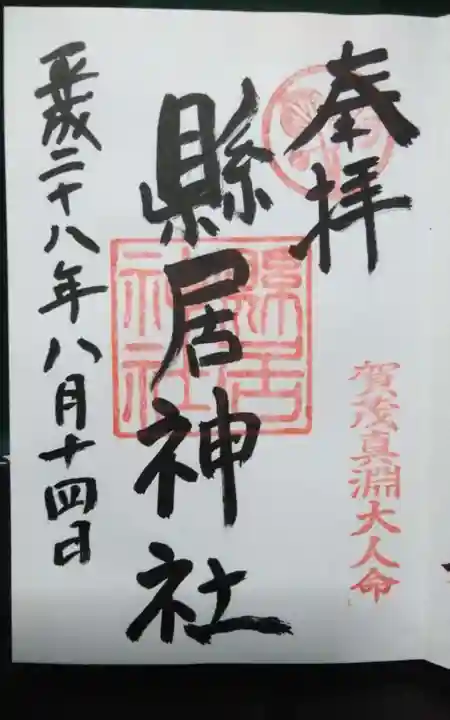 奉拝
賀茂真淵大人命
縣居神社
縣居
神社
平成二十八年八月十四日